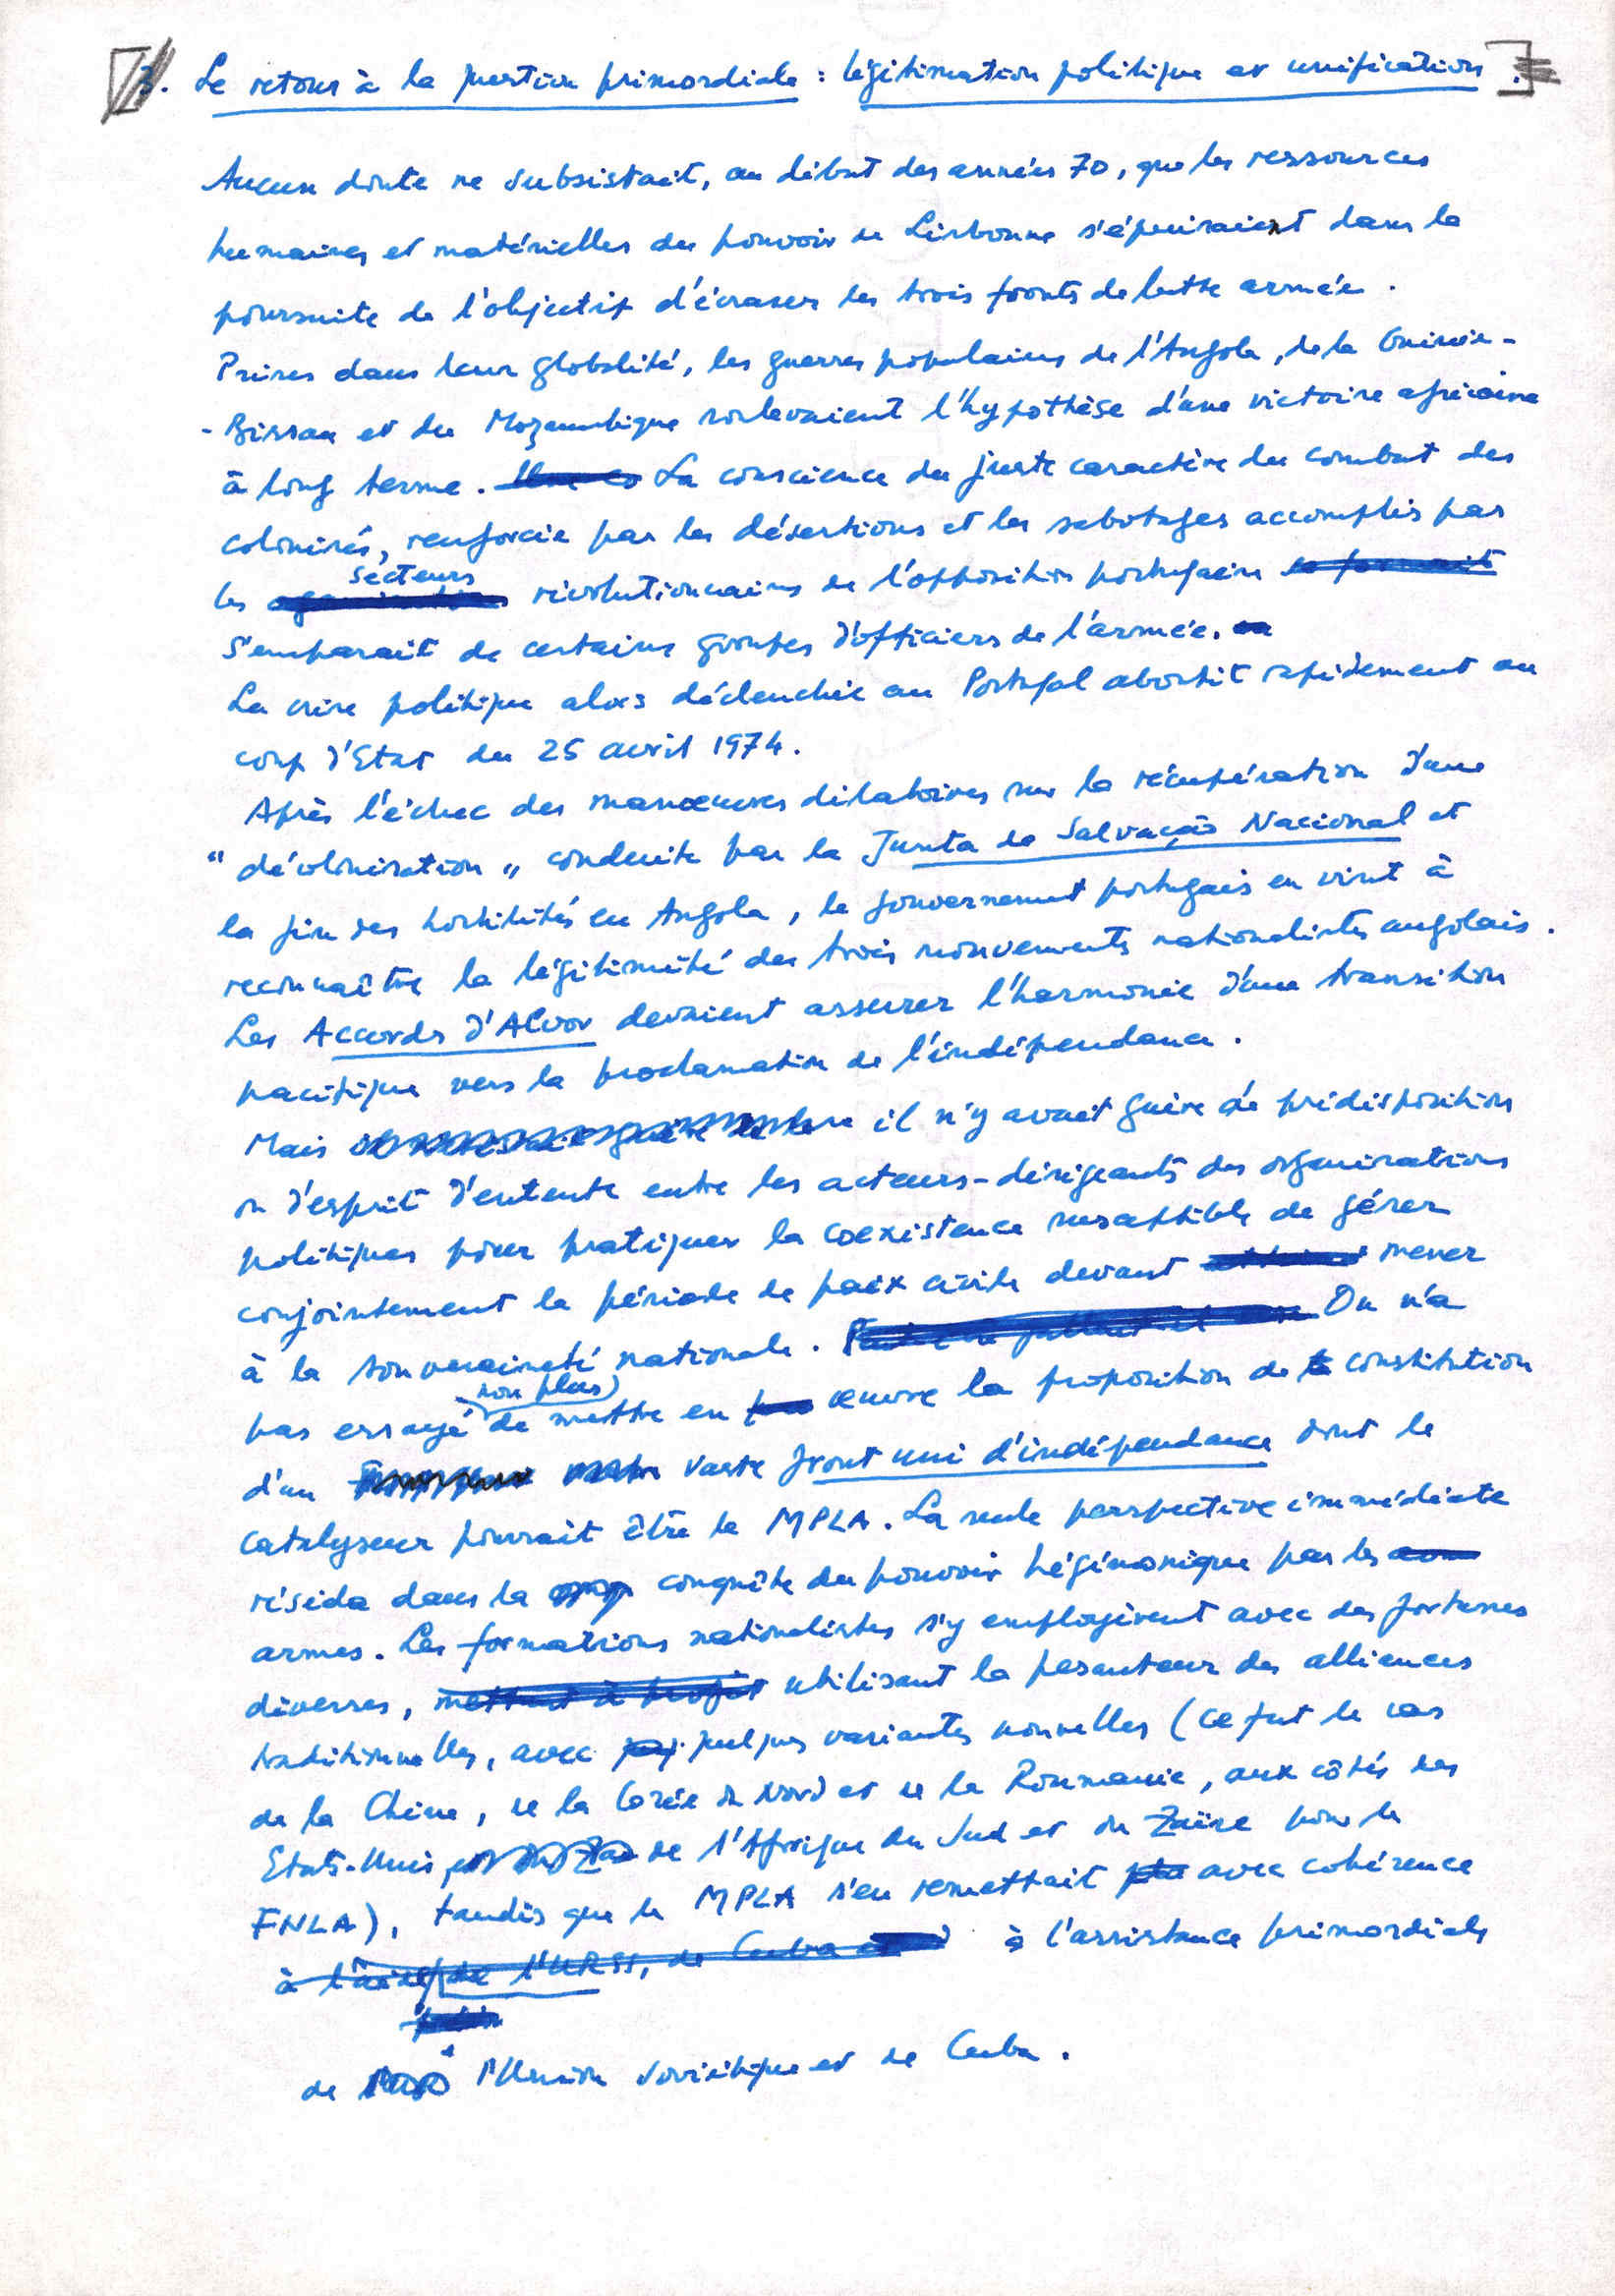 3. Le retour à la question primordiale : légitimation politique et unification.
Aucun doute ne subsistait, au début des années 70, que les ressources
humaines et matérielles du pouvoir de Lisbonne s'épuisaient dans la
poursuite de l'objectif d'écraser les trois fronts de lutte armée.
Prises dans leur globalité, les guerres populaires de l'Angola, de la Guinée-
-Bissau et du Moçambique soulevaient l'hypothèse d'une victoire africaine
à long terme. La conscience du juste caractère du combat des
colonisés, renforcée par les désertions et les sabotages accomplis par
secteurs
les révolutionnaires de l'opposition portugaise
s'emparait de certains groupes d'officiers de l'armée.
La crise politique alors déclenchée au Portugal aboutit rapidement au
coup d'Etat du 25 avril 1974.
Après l'échec des manœuvres dilatoires sur la récupération d'une
"décolonisation" conduite par la Junta de Salvação Nacional et
la fin des hostilités en Angola, le gouvernement portugais en vint à
reconnaître la légitimité des trois mouvements nationalistes angolais.
Les Accords d'Alvor devaient assurer l'harmonie d'une transition
pacifique vers la proclamation de l'indépendance.
Mais il n'y avait guère de prédisposition
ou d'esprit d'entente entre les acteurs-dirigeants des organisations
politiques pour pratiquer la coexistence susceptible de gérer
conjointement la période de paix civile devant mener
à la souveraineté nationale. On n'a
non plus
pas essayé de mettre en œuvre la proposition de constitution
d'un vaste front uni d'indépendance dont le
catalyseur pourrait être le MPLA. La seule perspective immédiate
résida dans la conquête du pouvoir hégémonique par les
armes. Les formations nationalistes s'y employèrent avec des fortunes
diverses, mettant à profit utilisant la pesanteur des alliances
traditionnelles, avec quelques variantes nouvelles (ce fut le cas
de la Chine, de la Corée du Nord et de la Roumanie, aux côtés des
Etats-Unis, de l'Afrique du Sud et du Zaïre pour le
FNLA), tandis que le MPLA s'en remettait avec cohérence
à l'aide de l'URSS, de Cuba à l'assistance primordiale
de l'Union soviétique et de Cuba.